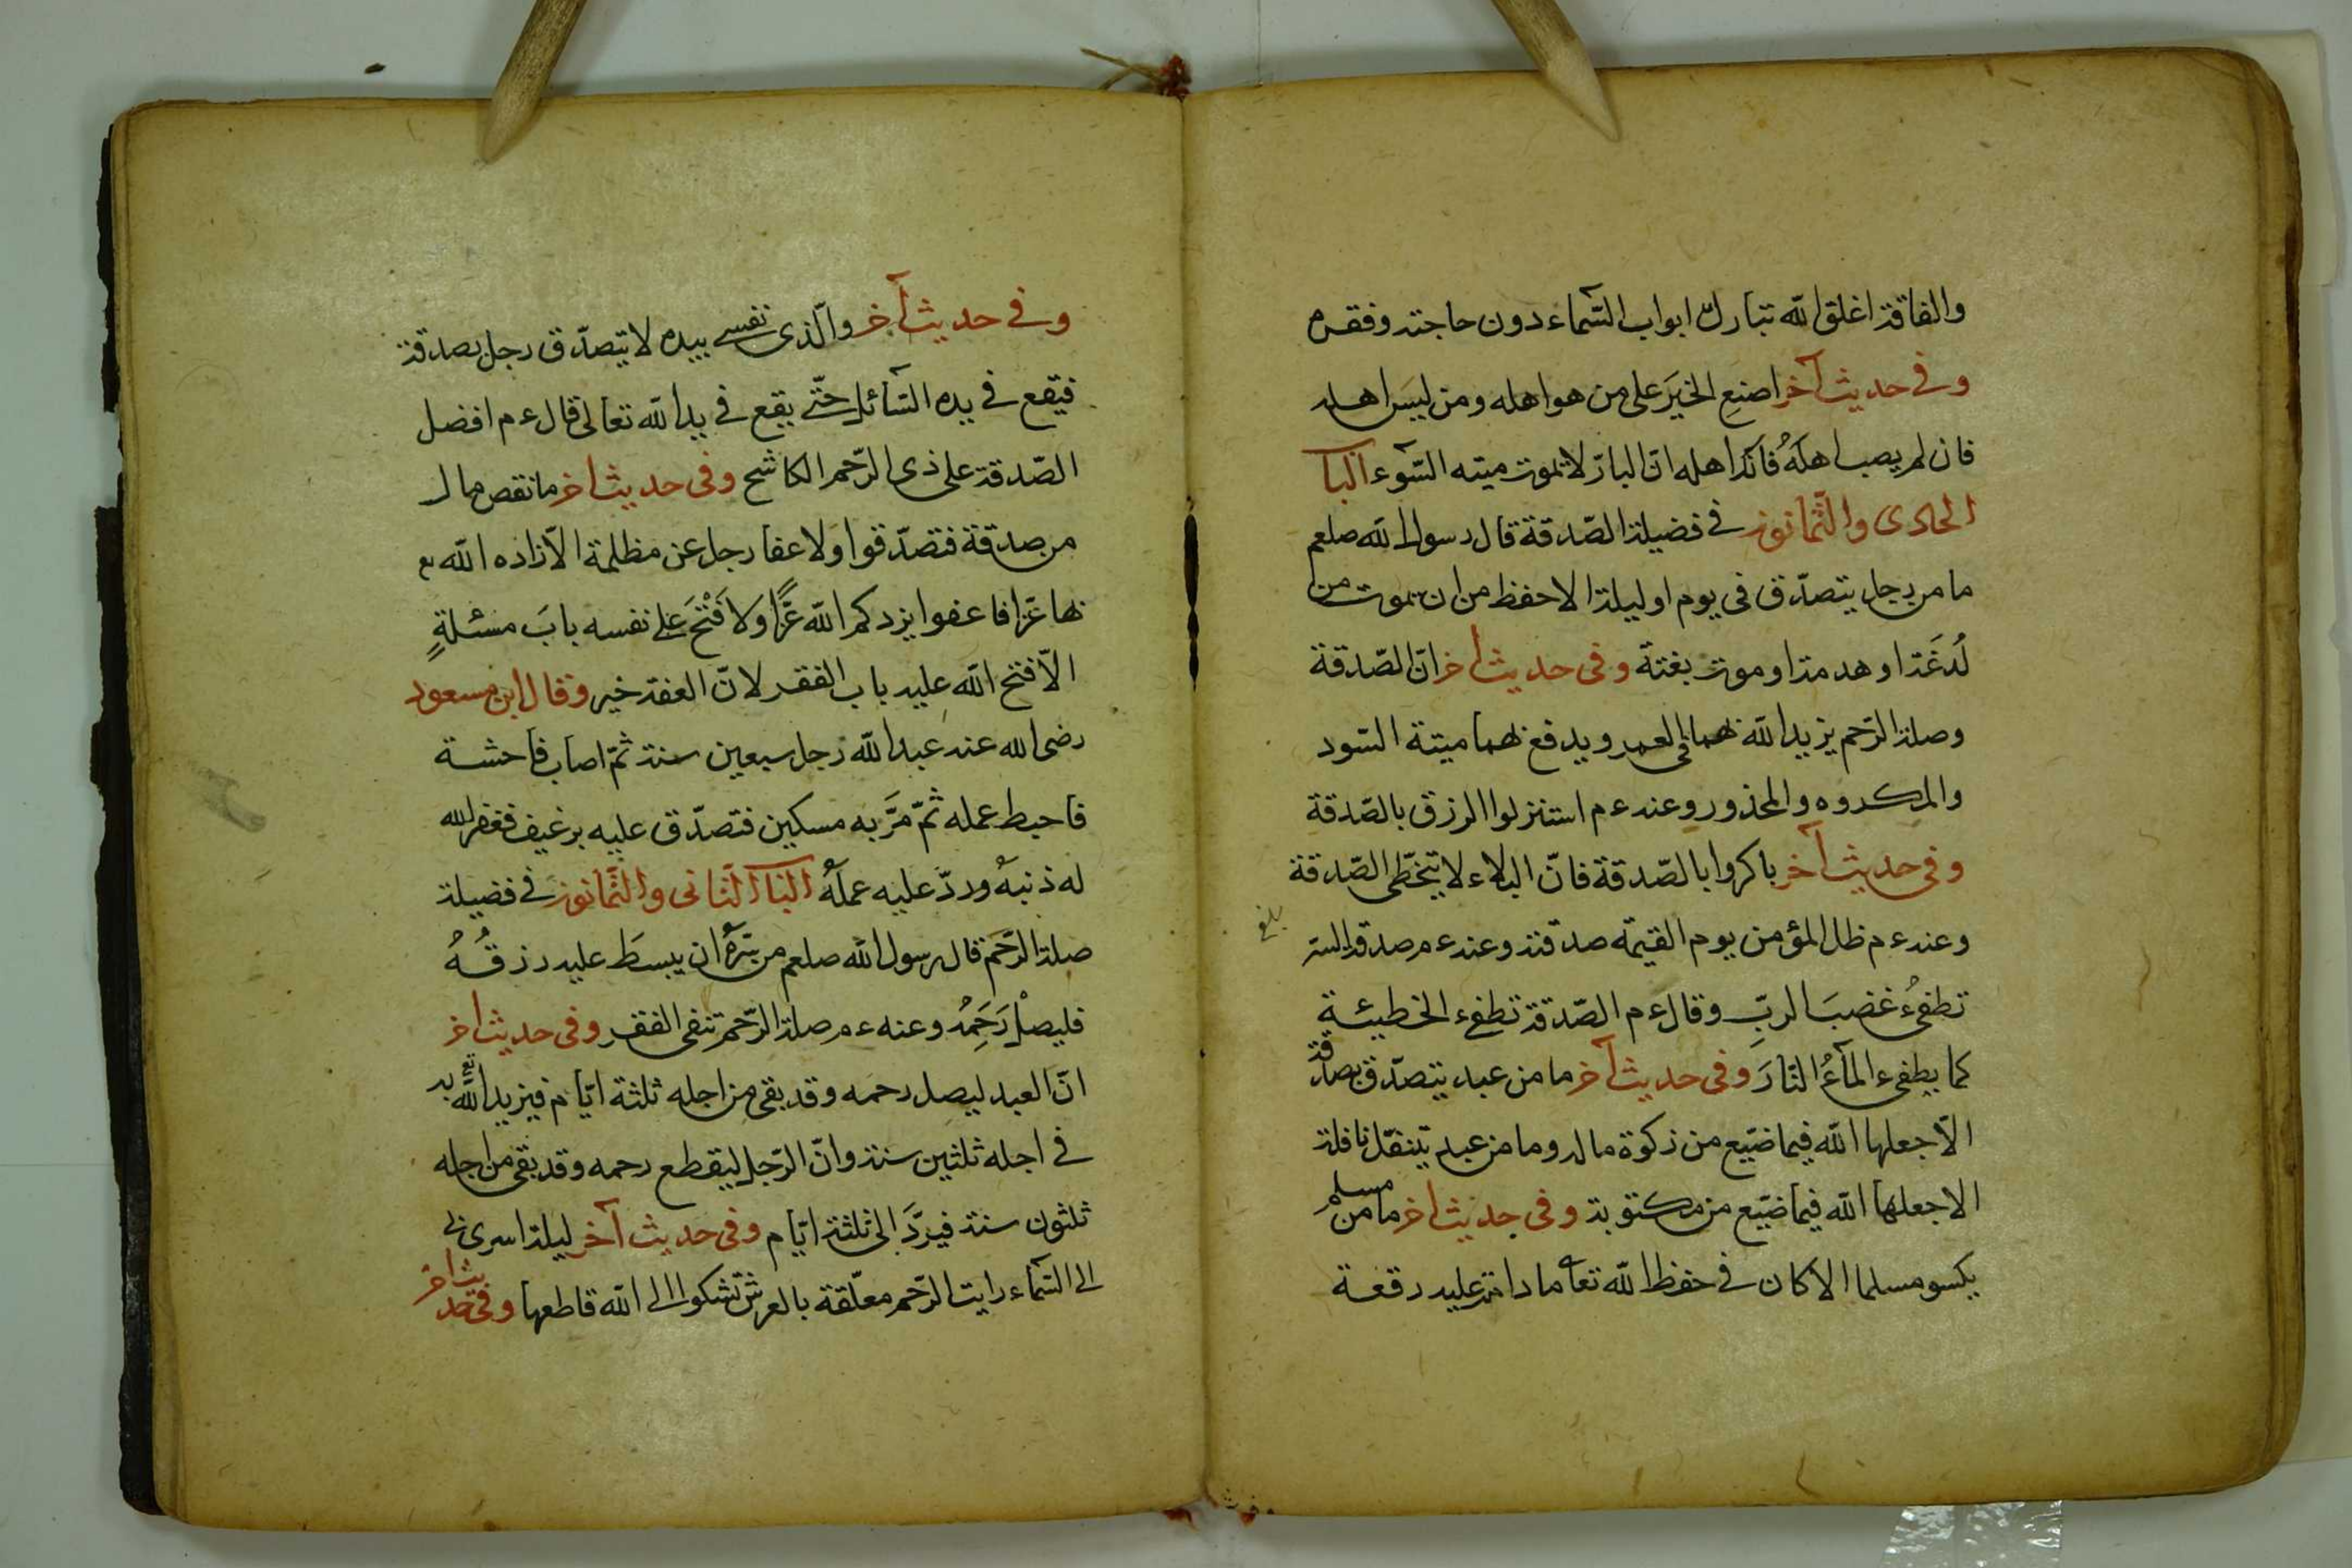 والفاقة اغلق الله تبارك ابواب السّماء دون حاجته وفقره
وفى حديث آخر اصنع الخيَر على من هو اهله ومن ليسَ اهله
فان لم يصب اهلَهُ فانّه اهله انّ البارّ لا يموت ميته السّوء البا
الحادى والثّمانون فى فضيلة الصّدقة قال رسول الله صلعم
ما من رجل يتصدّق فى يوم او ليلة الا حفظ من ان يموت من
لُدغَة او هدمة او موت بغتة وفى حديث اخر انّ الصّدقة
وصلة الرّحم يزيد الله بهما فى العمر ويدفع بهما ميتة السّود
والمكروه والمحذور وعنه ءم استنزلوا الرزق بالصّدقة
وفى حديث آخر باكروا بالصّدقة فانّ البلاء لا يتخطّى الصّدقة
وعنه ءم ظل المؤمن يوم القيمة صدقته وعنه ءم صدقة السّر
بلغ
تطفىُء غضبَ الربِّ وقال ءم الصّدقة تطفىء الخطيئة
كما يطفىء المآءُ النّارَ وفى حديث آخر ما من عبد يتصدّق بصدقة
الّا جعلها الله فيما ضيّع من زكوة ماله وما من عبد يتنفّل نافلة
الا جعلها الله فيما ضيّع من مكتوبة وفى حديث اخر ما من مسلم
يكسو مسلما الا كان فى حفظ الله تعا ما دامت عليه رقعة
وفى حديث آخر والّذى نفسى بيده لا يتصدّق رجل بصدقة
فيقع فى يده السّائل حتّى يقع فى يد الله تعالى قال ءم افضل
الصّدقة على ذى الرّحم الكاشح وفى حديث اخر ما نقص مال
من صدقة فتصدّقوا ولا عفا رجل عن مظلمة الّا زاده الله تع
بها عزّا فاعفوا يزدكم الله عزًّا ولا فَتَْحَ على نفسه بابَ مسئلةٍ
الّا فتح الله عليه باب الفقر لانّ العفة خير وقال ابن مسعود
رضى الله عنه عبد الله رجل سبعين سنة ثمّ اصاب فاحشة
فاحبط عمله ثمّ مَرَّ به مسكين فتصدّق عليه برغيف فغفر الله
له ذنبهُ وردّ عليه عملَهُ البا الثّانى والثّمانون فى فضيلة
صلة الرّحم قال رسول الله صلعم من سرّهُ ان يبسطَ عليه رزقُهُ
فليصلْ رَحِمَهُ وعنه ءم صلة الرّحم تنفى الفقر وفى حديث اخر
انّ العبد ليصل رحمه وقد بقى من اجله ثلثة ايّام فيزيد الله تع به
فى اجله ثلثين سنة وانّ الرّجل ليقطع رحمه وقد بقى من اجله
ثلثون سنة فيردَّ الى ثلثة ايّام وفى حديث آخر ليلة اسرى بى
الى السّماء رايت الرّحم معلّقة بالعرش تشكوا الى الله قاطعها وفى حديث اخر